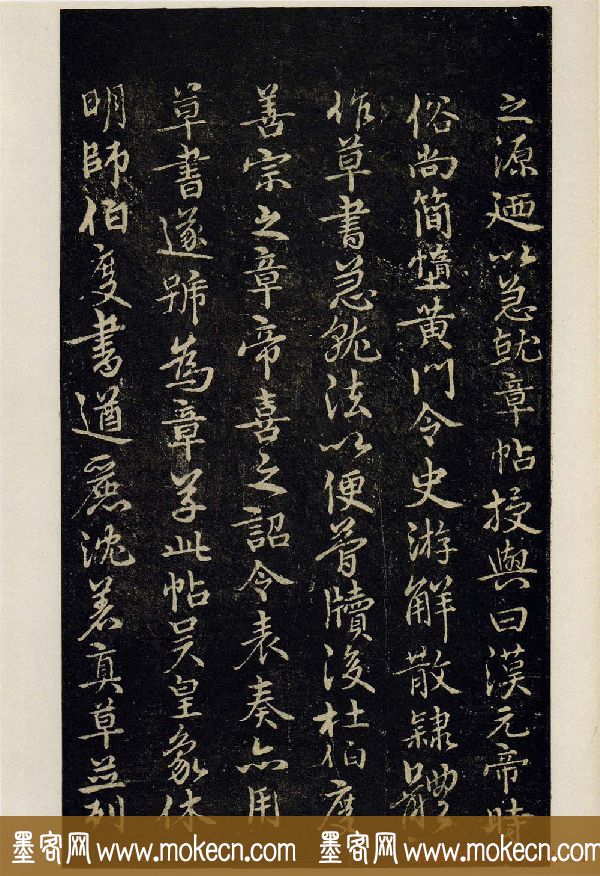 之源廼以急就章帖授與曰漢元帝時
俗尚簡惰黃門令史游解散隸體
作草書急就法以便簡牘後杜伯度
善宗之章帝喜之詔令表奏亦用
草書遂號為章草此帖吴皇象休
明師伯度書遒麗沈著真草並列
墨客网 www.mokecn.com 墨客网 www.mokecn.com